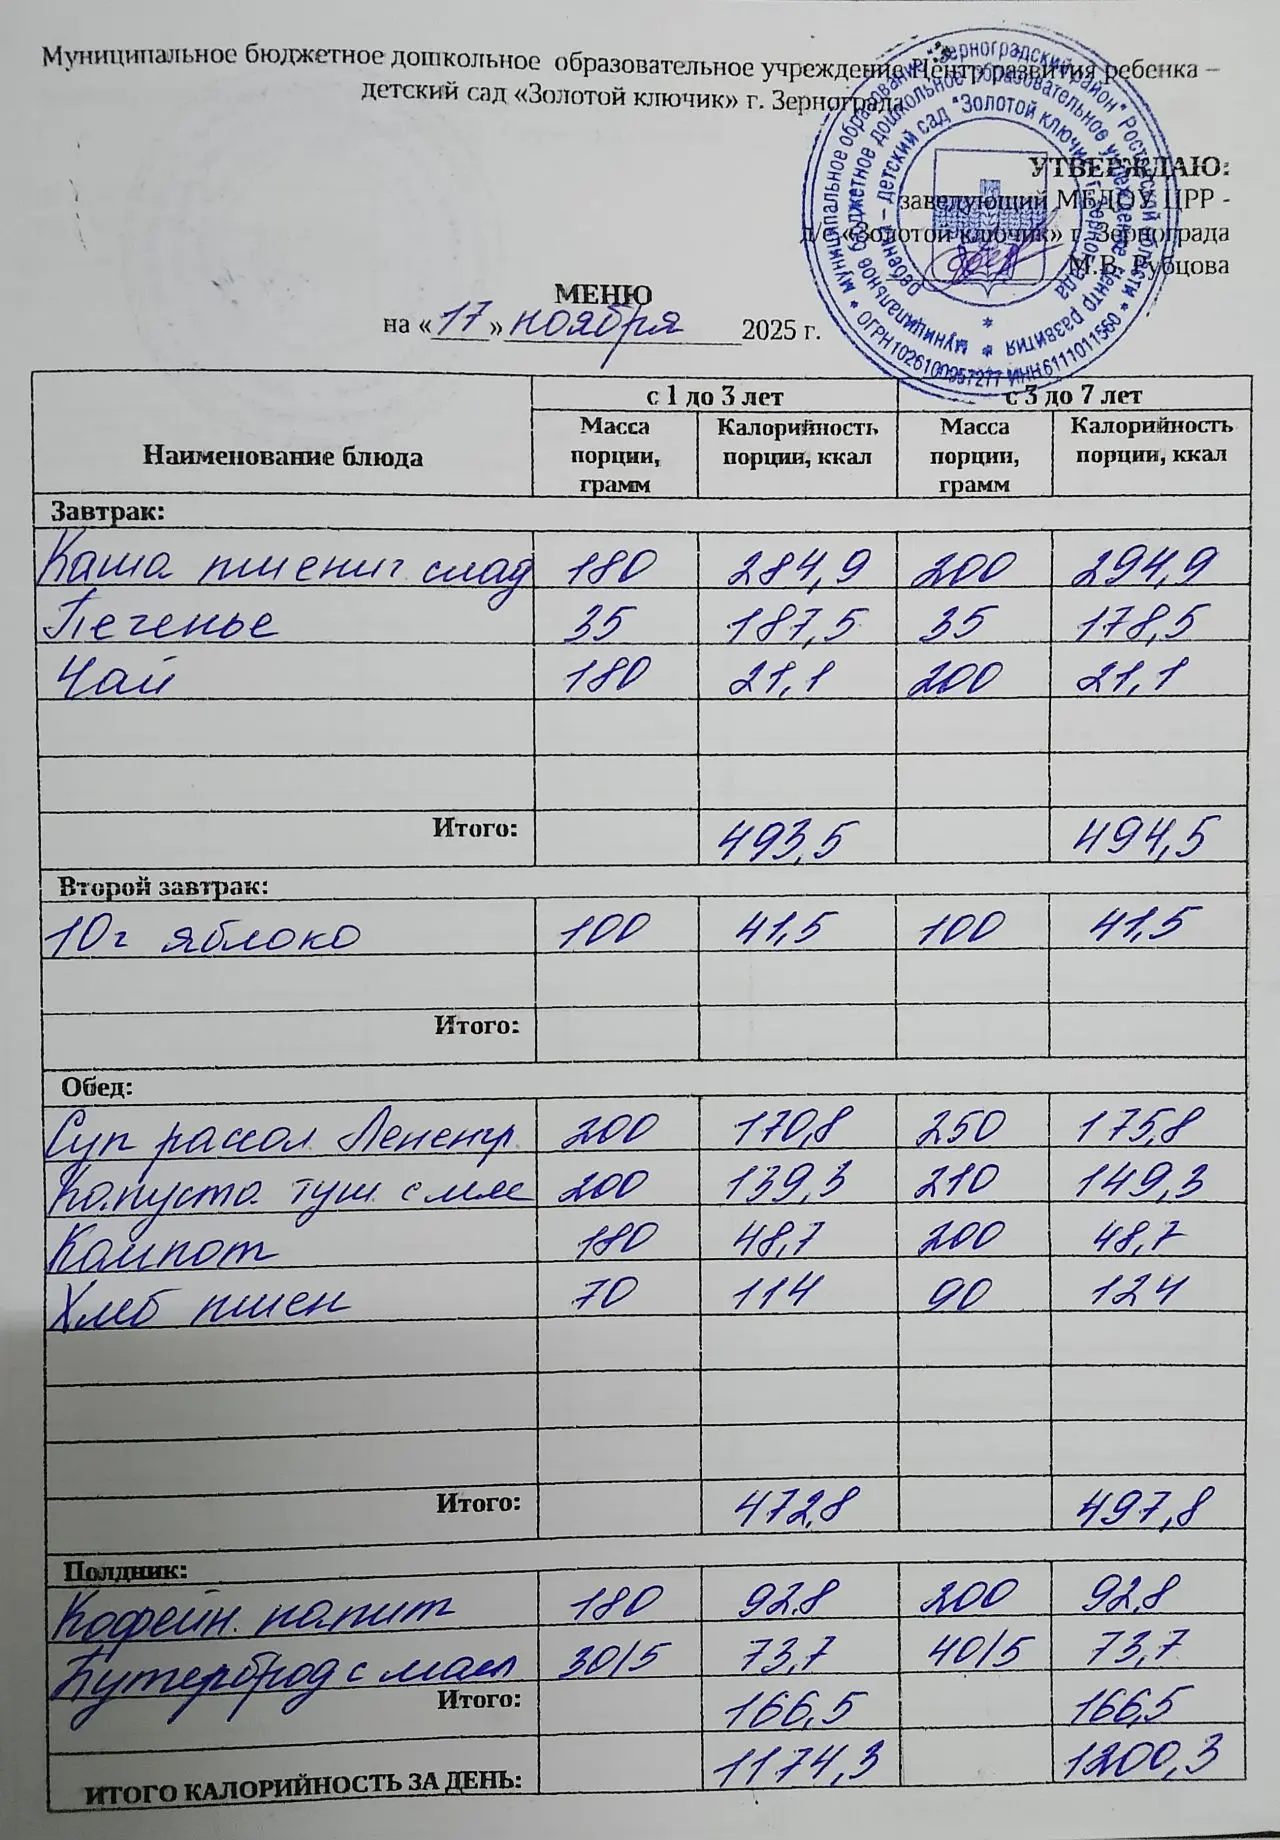 Муниципальное бюджетное дошкольное образовательное учреждение Центр развития ребенка –
детский сад «Золотой ключик» г. Зернограда
УТВЕРЖДАЮ:
заведующий МБДОУ ЦРР -
д/с «Золотой ключик» г. Зернограда
М.В. Рубцова
МЕНЮ
на «17» ноября 2025 г.
Наименование блюда
с 1 до 3 лет с 3 до 7 лет
Масса порции, грамм Калорийность порции, ккал Масса порции, грамм Калорийность порции, ккал
Завтрак:
Каша пшенич. слад 180 284,9 200 294,9
Печенье 35 187,5 35 178,5
Чай 180 21,1 200 21,1
Итого: 493,5 494,5
Второй завтрак:
10ч яблоко 100 41,5 100 41,5
Итого:
Обед:
Суп рассол. Лененгр. 200 170,8 250 175,8
Капуста туш. с мяс 200 139,3 210 149,3
Компот 180 48,7 200 48,7
Хлеб пшен 70 114 90 124
Итого: 472,8 497,8
Полдник:
Кофейн. напит 180 92,8 200 92,8
Бутерброд с масл 30/5 73,7 40/5 73,7
Итого: 166,5 166,5
ИТОГО КАЛОРИЙНОСТЬ ЗА ДЕНЬ: 1174,3 1200,3
муниципальное образование "Зерноградский район" Ростовской области
муниципальное бюджетное дошкольное образовательное учреждение Центр развития
ребенка – детский сад "Золотой ключик" г. Зернограда
ОГРН 1026100957277 ИНН 6111011560